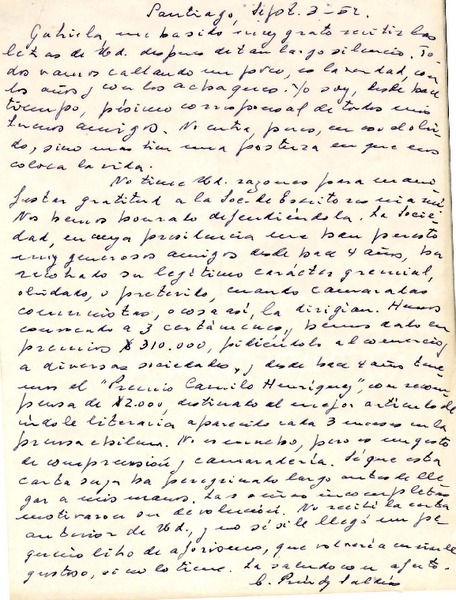 Santiago, Sept. 3-52.
Gabriela, me ha sido muy grato recibir las
letras de Ud. despues de tan largo silencio. To-
dos vamos callando un poco, es la verdad, con
los años y con los achaques. Yo soy, desde hace
tiempo, pésimo corresponsal de todos mis
buenos amigos. No entra, pues, en eso el olvi-
do, sino más bien una postura en que nos
coloca la vida.
No tiene Ud. razones para mani-
festar gratitud a la Soc. de Escritores ni a mí.
Nos hemos honrado defendiéndola. La Socie-
dad, en cuya presidencia me han puesto
muy generosos amigos desde hace 4 años, ha
recobrado su legítimo carácter gremial,
olvidado, o preterido, cuando camaradas
comunistas, o cosa así, la dirigían. Hemos
convocado a 3 certámenes, hemos dado en
premios $ 310.000, pidiéndole al comercio y
a diversas sociedades, y desde hace 4 años tene-
mos el "Premio Camilo Henríquez", con recom-
pensa de $2.000, destinado al mejor artículo de
índole literaria aparecido cada 3 meses en la
prensa chilena. No es mucho, pero es un gesto
de comprensión y camaradería. Sé que esta
carta suya ha peregrinado largo antes de lle-
gar a mis manos. Las señas incompletas
motivaron su devolución. No recibí la carta
anterior de Ud., y no sé si le llegó un pe-
queño libro de aforismos, que volvería a enviarle
gustoso, si no lo tiene. La saluda con afecto.
C. Préndez Saldías